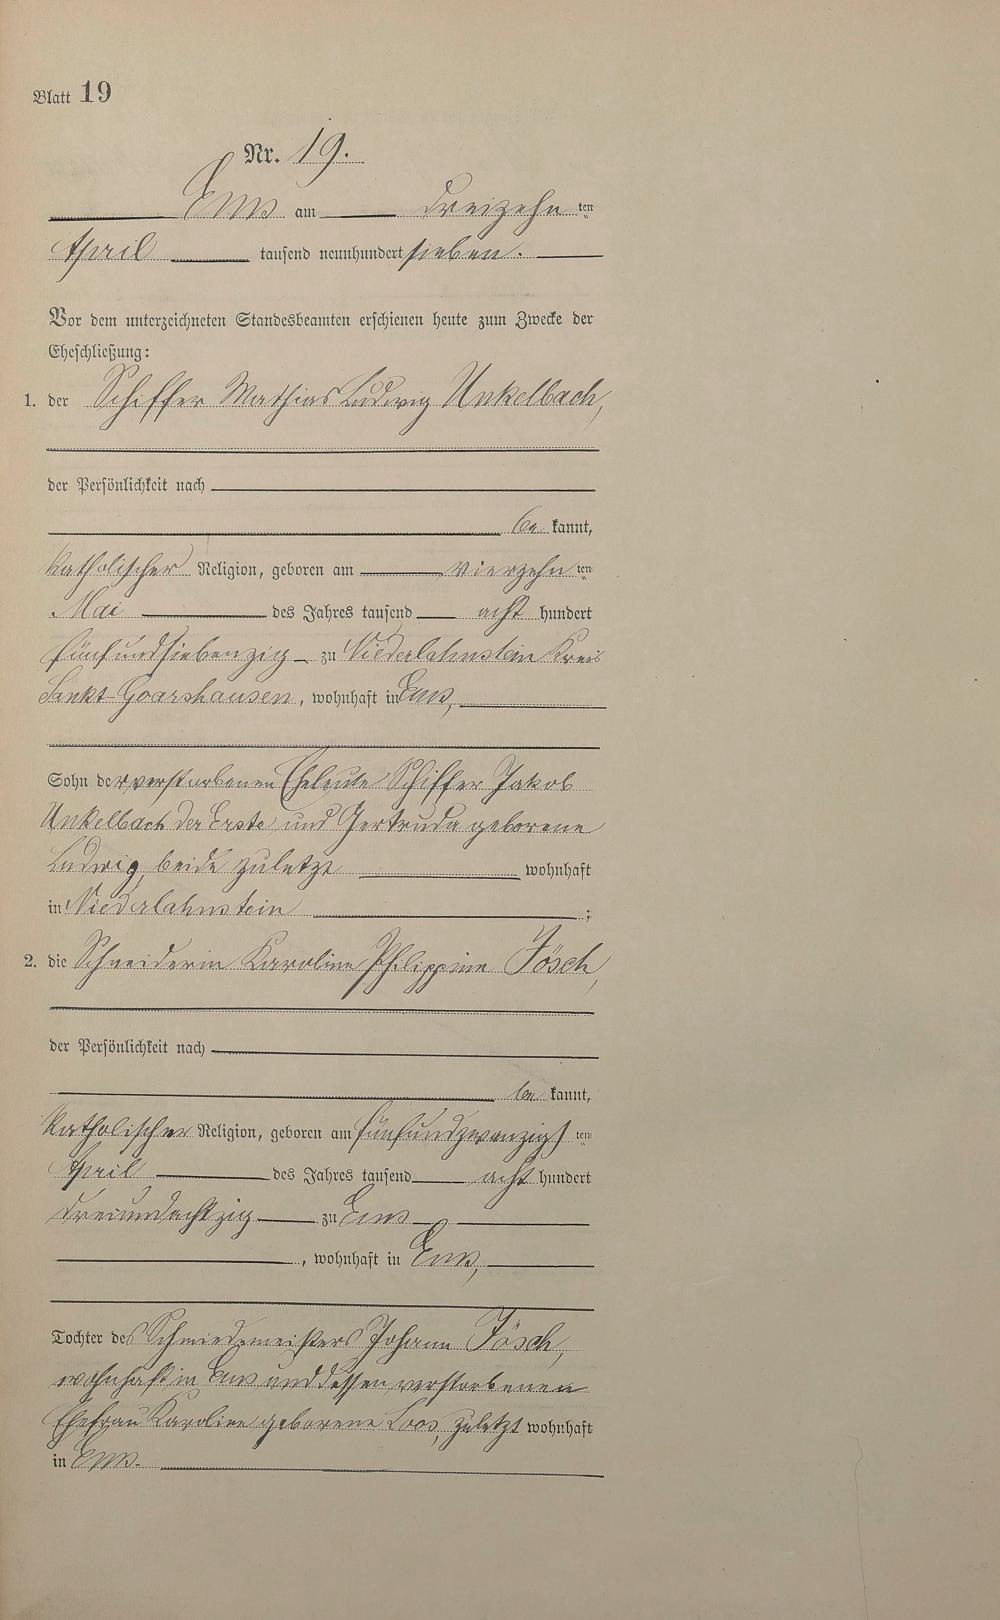 Blatt 19
Nr. 19.
Ems am dreizehn ten
April tausend neunhundert sieben.
Vor dem unterzeichneten Standesbeamten erschienen heute zum Zwecke der
Eheschließung:
1. der Schiffer Mathias Ludwig Unkelbach,
der Persönlichkeit nach
be kannt,
katholischer Religion, geboren am vierzehn ten
Mai des Jahres tausend acht hundert
fünfundsiebenzig zu Niederlahnstein Kreis
Sankt-Goarshausen, wohnhaft in Ems,
Sohn der verstorbenen Eheleute Schiffer Jakob
Unkelbach der Erste und Gertruda geborene
Ludwig, beide zuletzt wohnhaft
in Niederlahnstein ;
2. die Schneiderin Karoline Philippine Jösch,
der Persönlichkeit nach
be kannt,
katholischer Religion, geboren am fünfundzwanzigs ten
April des Jahres tausend acht hundert
dreiundachtzig zu Ems
, wohnhaft in Ems,
Tochter des Schmiedemeisters Johann Jösch,
wohnhaft in Ems und dessen verstorbenen
Ehefrau Karoline geborene Loos, zuletzt wohnhaft
in Ems.